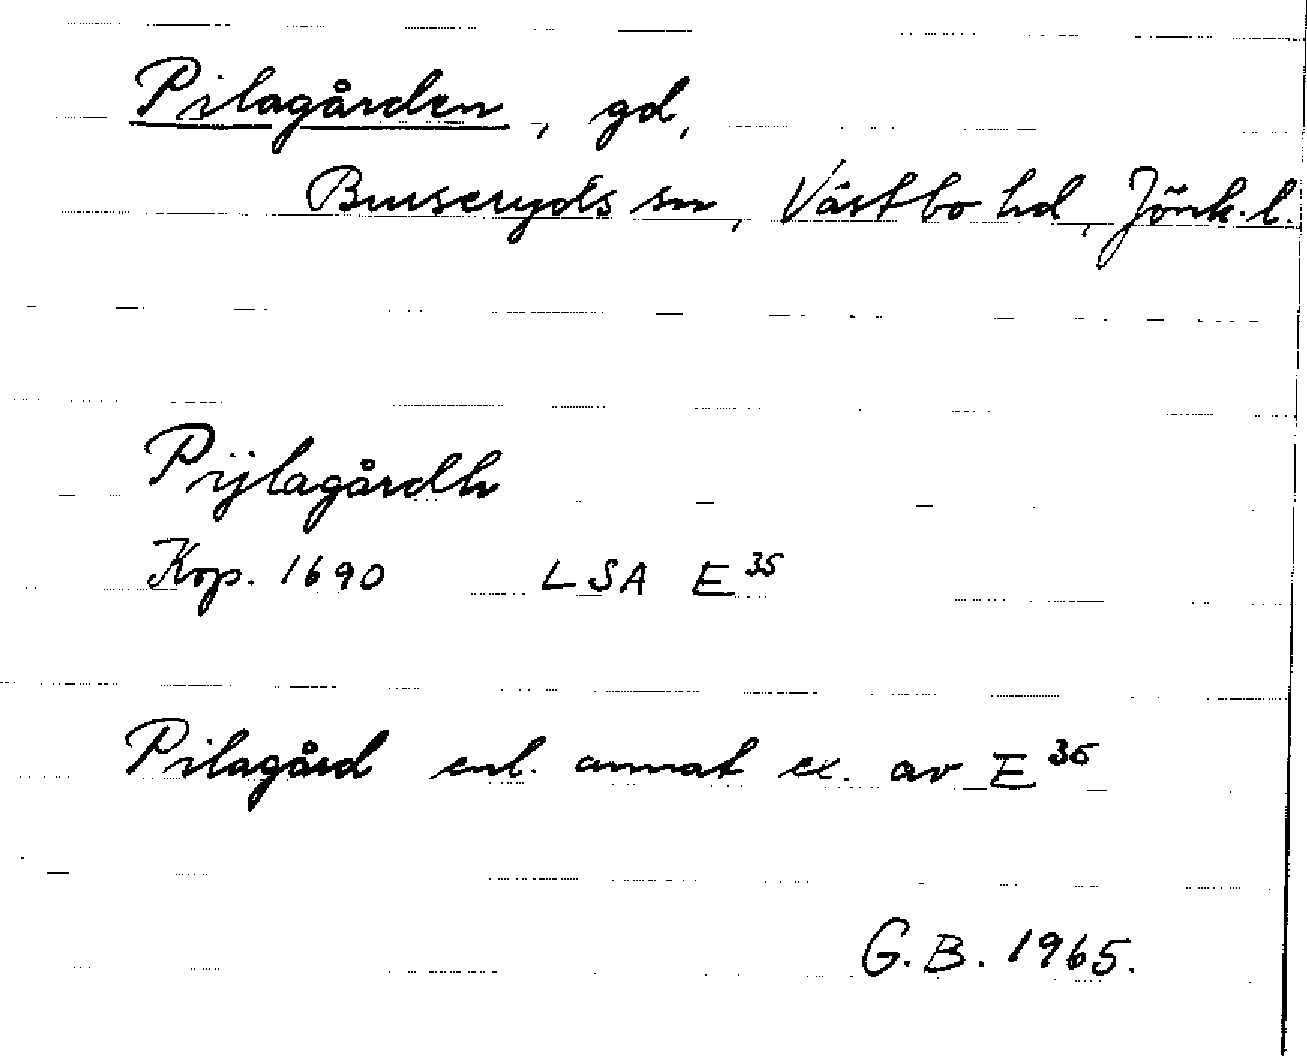 Pilagården, gd,
Burseryds sn, Västbo hd, Jönk. l.
Pijlagårdh
Kop. 1690 LSA E 35
Pilagård enl. annat ex. av E 35
G. B. 1965.